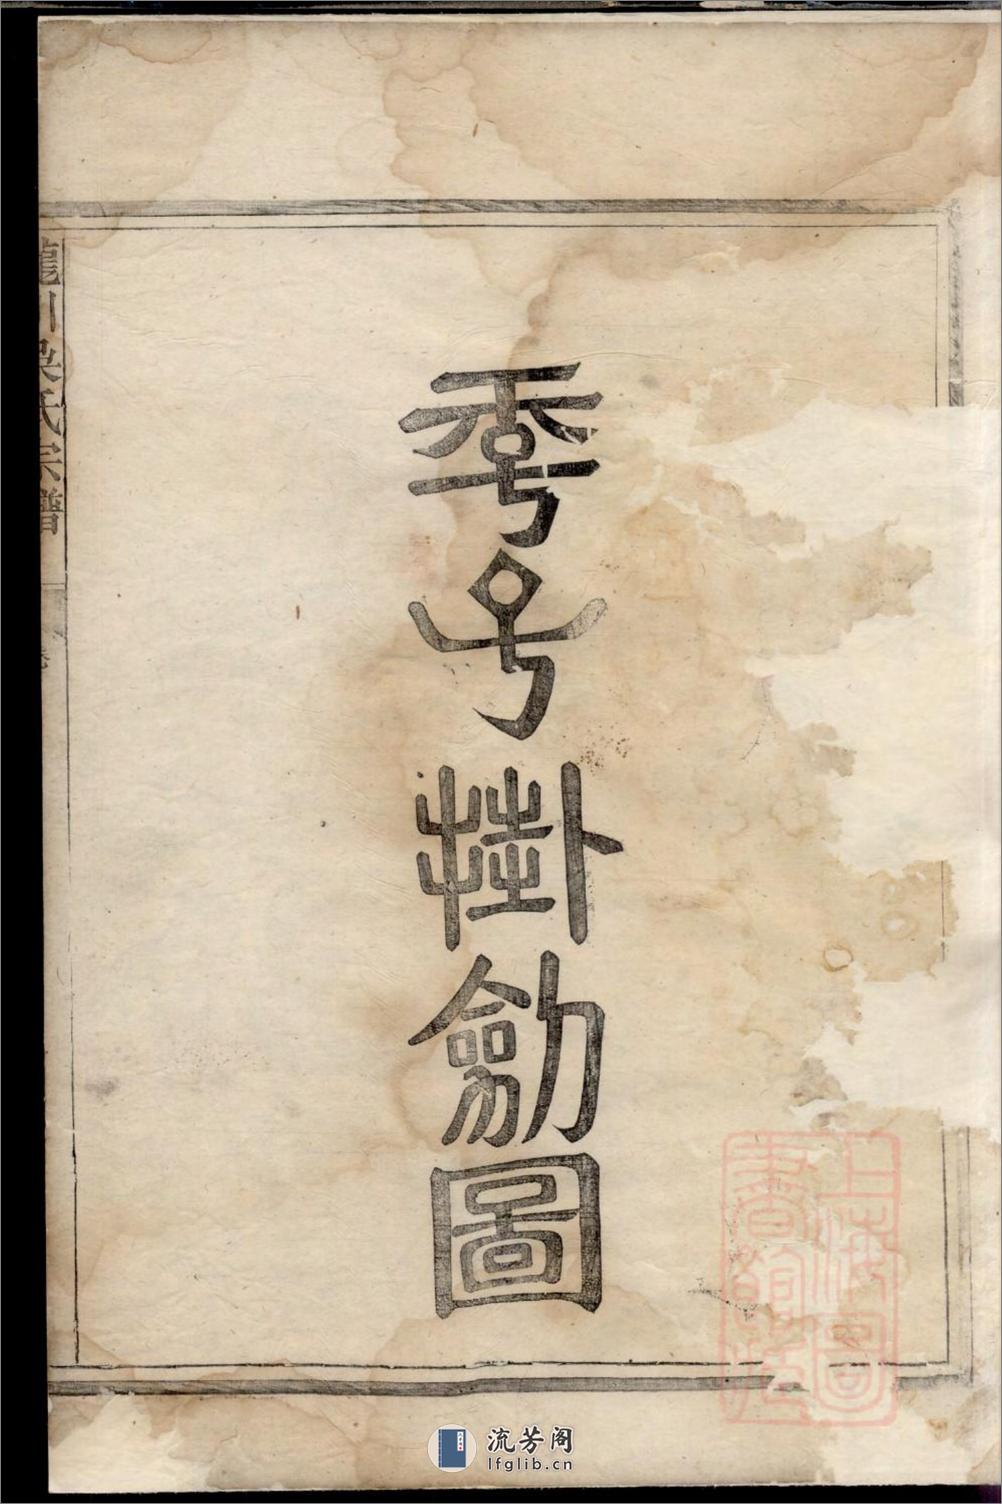 季子掛劒圖
龍川梁氏宗譜
卷
上海圖
書館藏
流芳阁
lfglib.cn